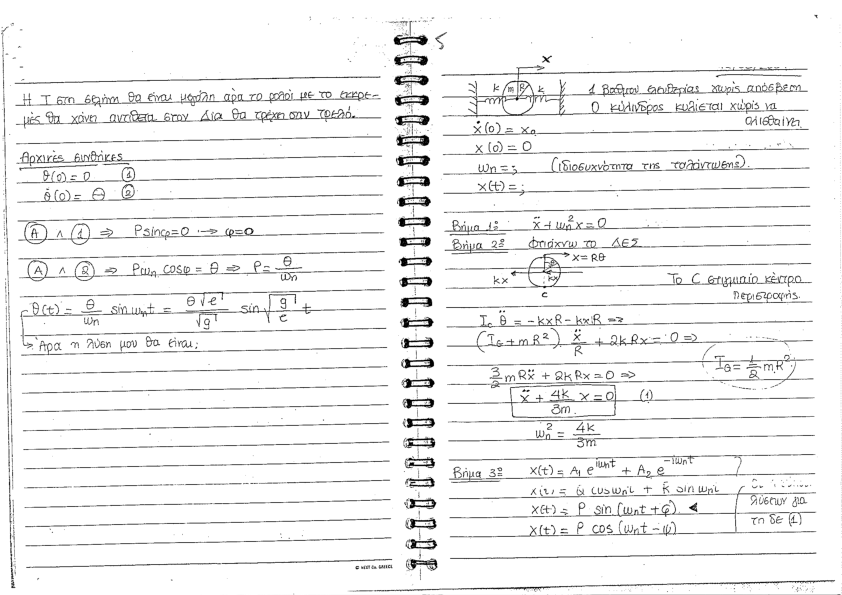 Η Τ στη σελήνη θα είναι μεγάλη άρα το ρολόι με το εκκρε-
μές θα χάνει αντίθετα στον Δία θα τρέχει σαν τρελό.
Αρχικές συνθήκες
θ(0) = 0 ①
θ̇(0) = Θ ②
Ⓐ ∧ ① ⇒ P sinφ = 0 → φ = 0
Ⓐ ∧ ② ⇒ Pωn cosφ = Θ ⇒ P = Θ/ωn
θ(t) = Θ/ωn sin ωnt = Θ√e/√g sin √(g/e) t
Άρα η λύση μου θα είναι;
© NEXT Co. GREECE
5
x
k m R k
1 βαθμού ελευθερίας χωρίς απόσβεση
Ο κύλινδρος κυλίεται χωρίς να
ολισθαίνει.
ẋ(0) = x₀
x(0) = 0
ωn = ; (ιδιοσυχνότητα της ταλάντωσης).
x(t) = ;
Βήμα 1º ẍ + ωn² x = 0
Βήμα 2º Φτιάχνω το ΔΕΣ
x = Rθ
θ
kx kx
C
Το C στιγμιαίο κέντρο
περιστροφής.
Ic θ̈ = -kxR - kxR ⇒
(IG + mR²) ẍ/R + 2kRx = 0 ⇒
IG = 1/2 mR²
3/2 mRẍ + 2kRx = 0 ⇒
ẍ + 4k/3m x = 0 (1)
ωn² = 4k/3m
Βήμα 3º x(t) = A₁ e^{iωnt} + A₂ e^{-iωnt}
x(t) = cos ωnt + sin ωnt
x(t) = P sin (ωnt + φ)
x(t) = P cos (ωnt - ψ)
λύσεων για
τη δε (1)